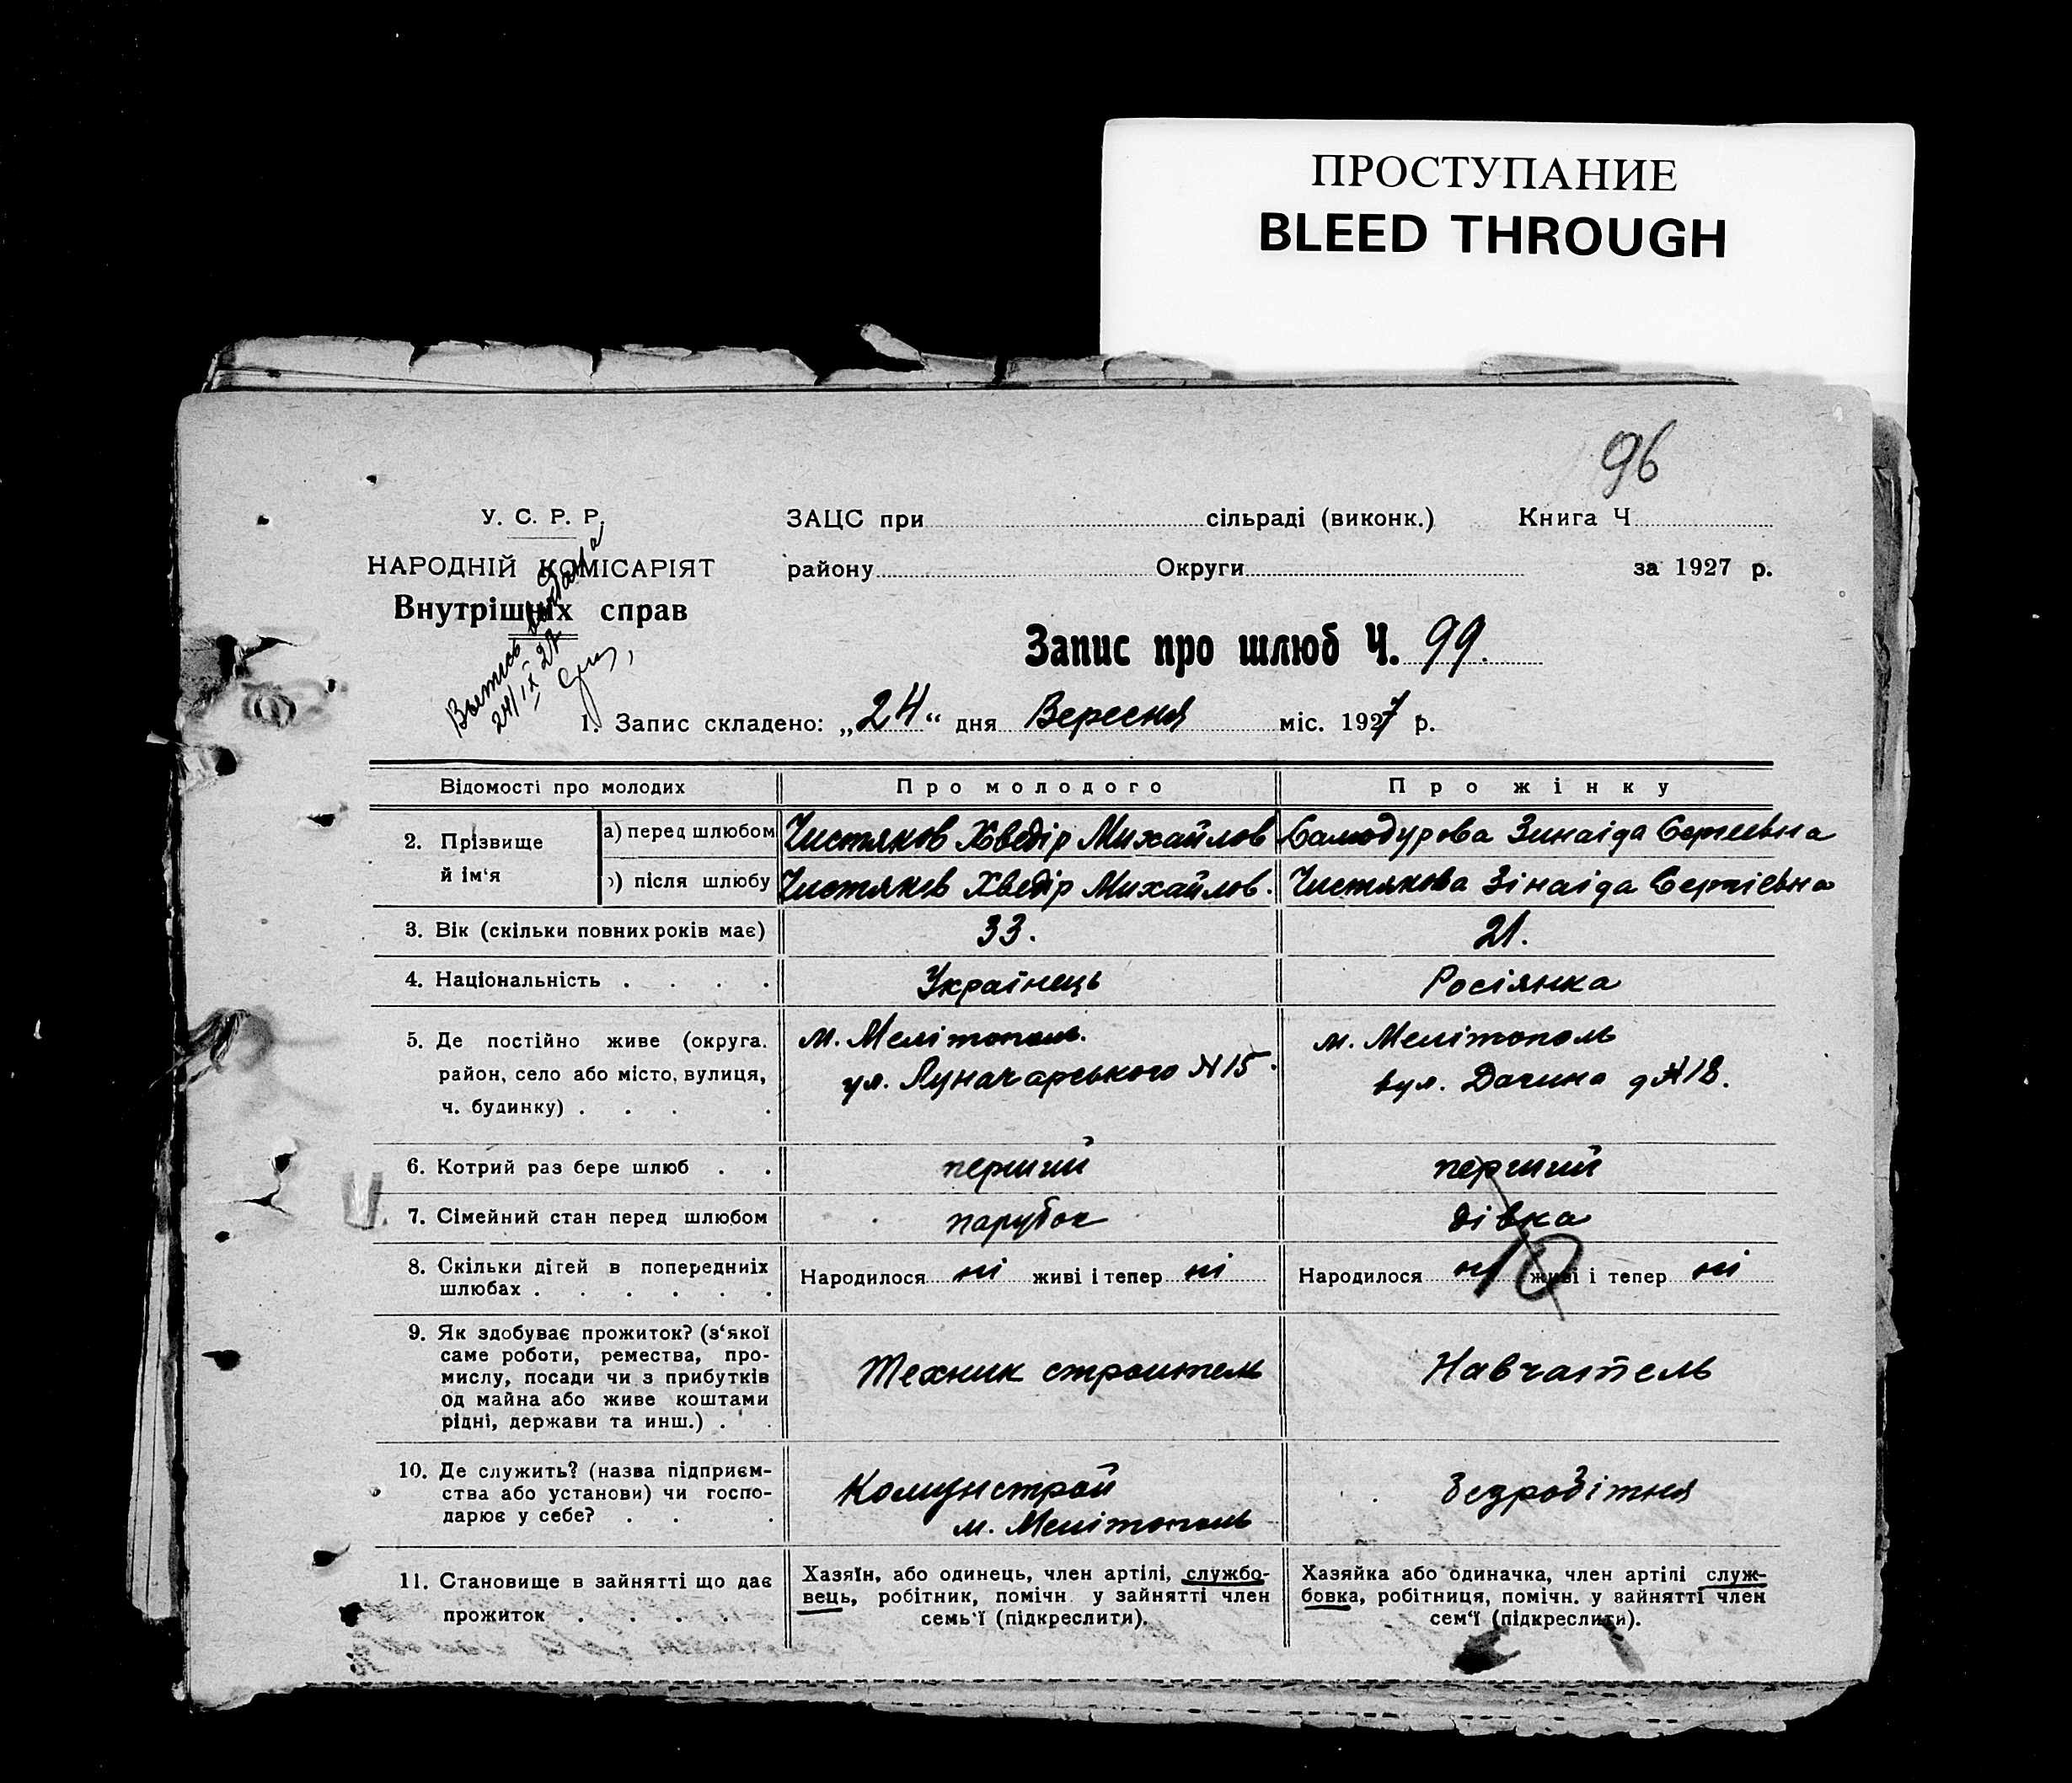 ПРОСТУПАНИЕ
BLEED THROUGH
96
У. С. Р. Р.
НАРОДНІЙ КОМІСАРІЯТ
Внутрішніх справ
Выпись выдана
24/IX 27
ЗАЦС при сільраді (виконк.) Книга Ч
району Округи за 1927 р.
Запис про шлюб Ч. 99.
1. Запис складено: „24" дня Вересня міс. 1927 р.
Відомості про молодих Про молодого Про жінку
2. Прізвище й ім'я
а) перед шлюбом Чистяков Хведір Михайлов Самодурова Зинаіда Сергеевна
) після шлюбу Чистяков Хведір Михайлов. Чистякова Зінаіда Сергіевна
3. Вік (скільки повних років має) 33. 21.
4. Національність . . . . Українець Росіянка
5. Де постійно живе (округа. район, село або місто, вулиця, ч. будинку) . . . .
м. Мелітополь.
ул. Луначарського N 15.
м. Мелітополь
вул. Дачина д N 18.
6. Котрий раз бере шлюб . . перший перший
7. Сімейний стан перед шлюбом парубок дівка
8. Скільки дітей в попередниіх шлюбах . . . . . .
Народилося ні живі і тепер ні
Народилося ні живі і тепер ні
10
9. Як здобуває прожиток? (з'якої
саме роботи, ремества, про-
мислу, посади чи з прибутків
од майна або живе коштами
рідні, держави та инш.) . .
Техник строитель
Навчатель
10. Де служить? (назва підприєм-
ства або установи) чи госпо-
дарює у себе? . . .
Комунстрой
м. Мелітополь
безробітня
11. Становище в зайнятті що дає
прожиток . . . . .
Хазяїн, або одинець, член артілі, службо-
вець, робітник, помічн у зайнятті член
семь'ї (підкреслити).
Хазяйка або одиначка, член артілі служ-
бовка, робітниця, помічн. у зайнятті член
сем'ї (підкреслити).